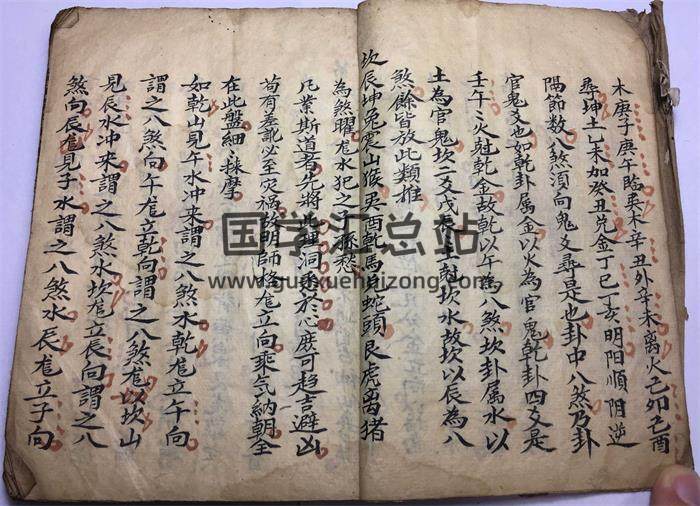 木庚子庚午臨巽木辛丑外辛未離火己卯己酉
尋坤土乙未加癸丑兑金丁巳丁亥明陽順阴逆
陽節数八煞須向鬼爻尋是也卦中八煞乃卦
官鬼爻也如乾卦属金以火為官鬼乾卦四爻是
壬午火尅乾金故乾以午為八煞坎卦属水以
土為官鬼坎二爻戊辰土尅坎水故坎以辰為八
煞餘皆放此類推
坎辰坤兔震山猴巽酉乾馬兑蛇頭艮虎离猪
為煞曜龙水犯之子孫愁
凡業斯道者先將此理洞悉於心庶可趋吉避凶
苟有差訛必至灾禍故明師格龙立向乘气納朝全
在此盤細揉摩
如乾山見午水冲来謂之八煞水乾龙立午向
謂之八煞向午龙立乾向謂之八煞龙以坎山
見辰水冲来謂之八煞水坎龙立辰向謂之八
煞向辰龙見子水謂之八煞水辰龙立子向
国学汇总站
www.guoxuehuizong.com